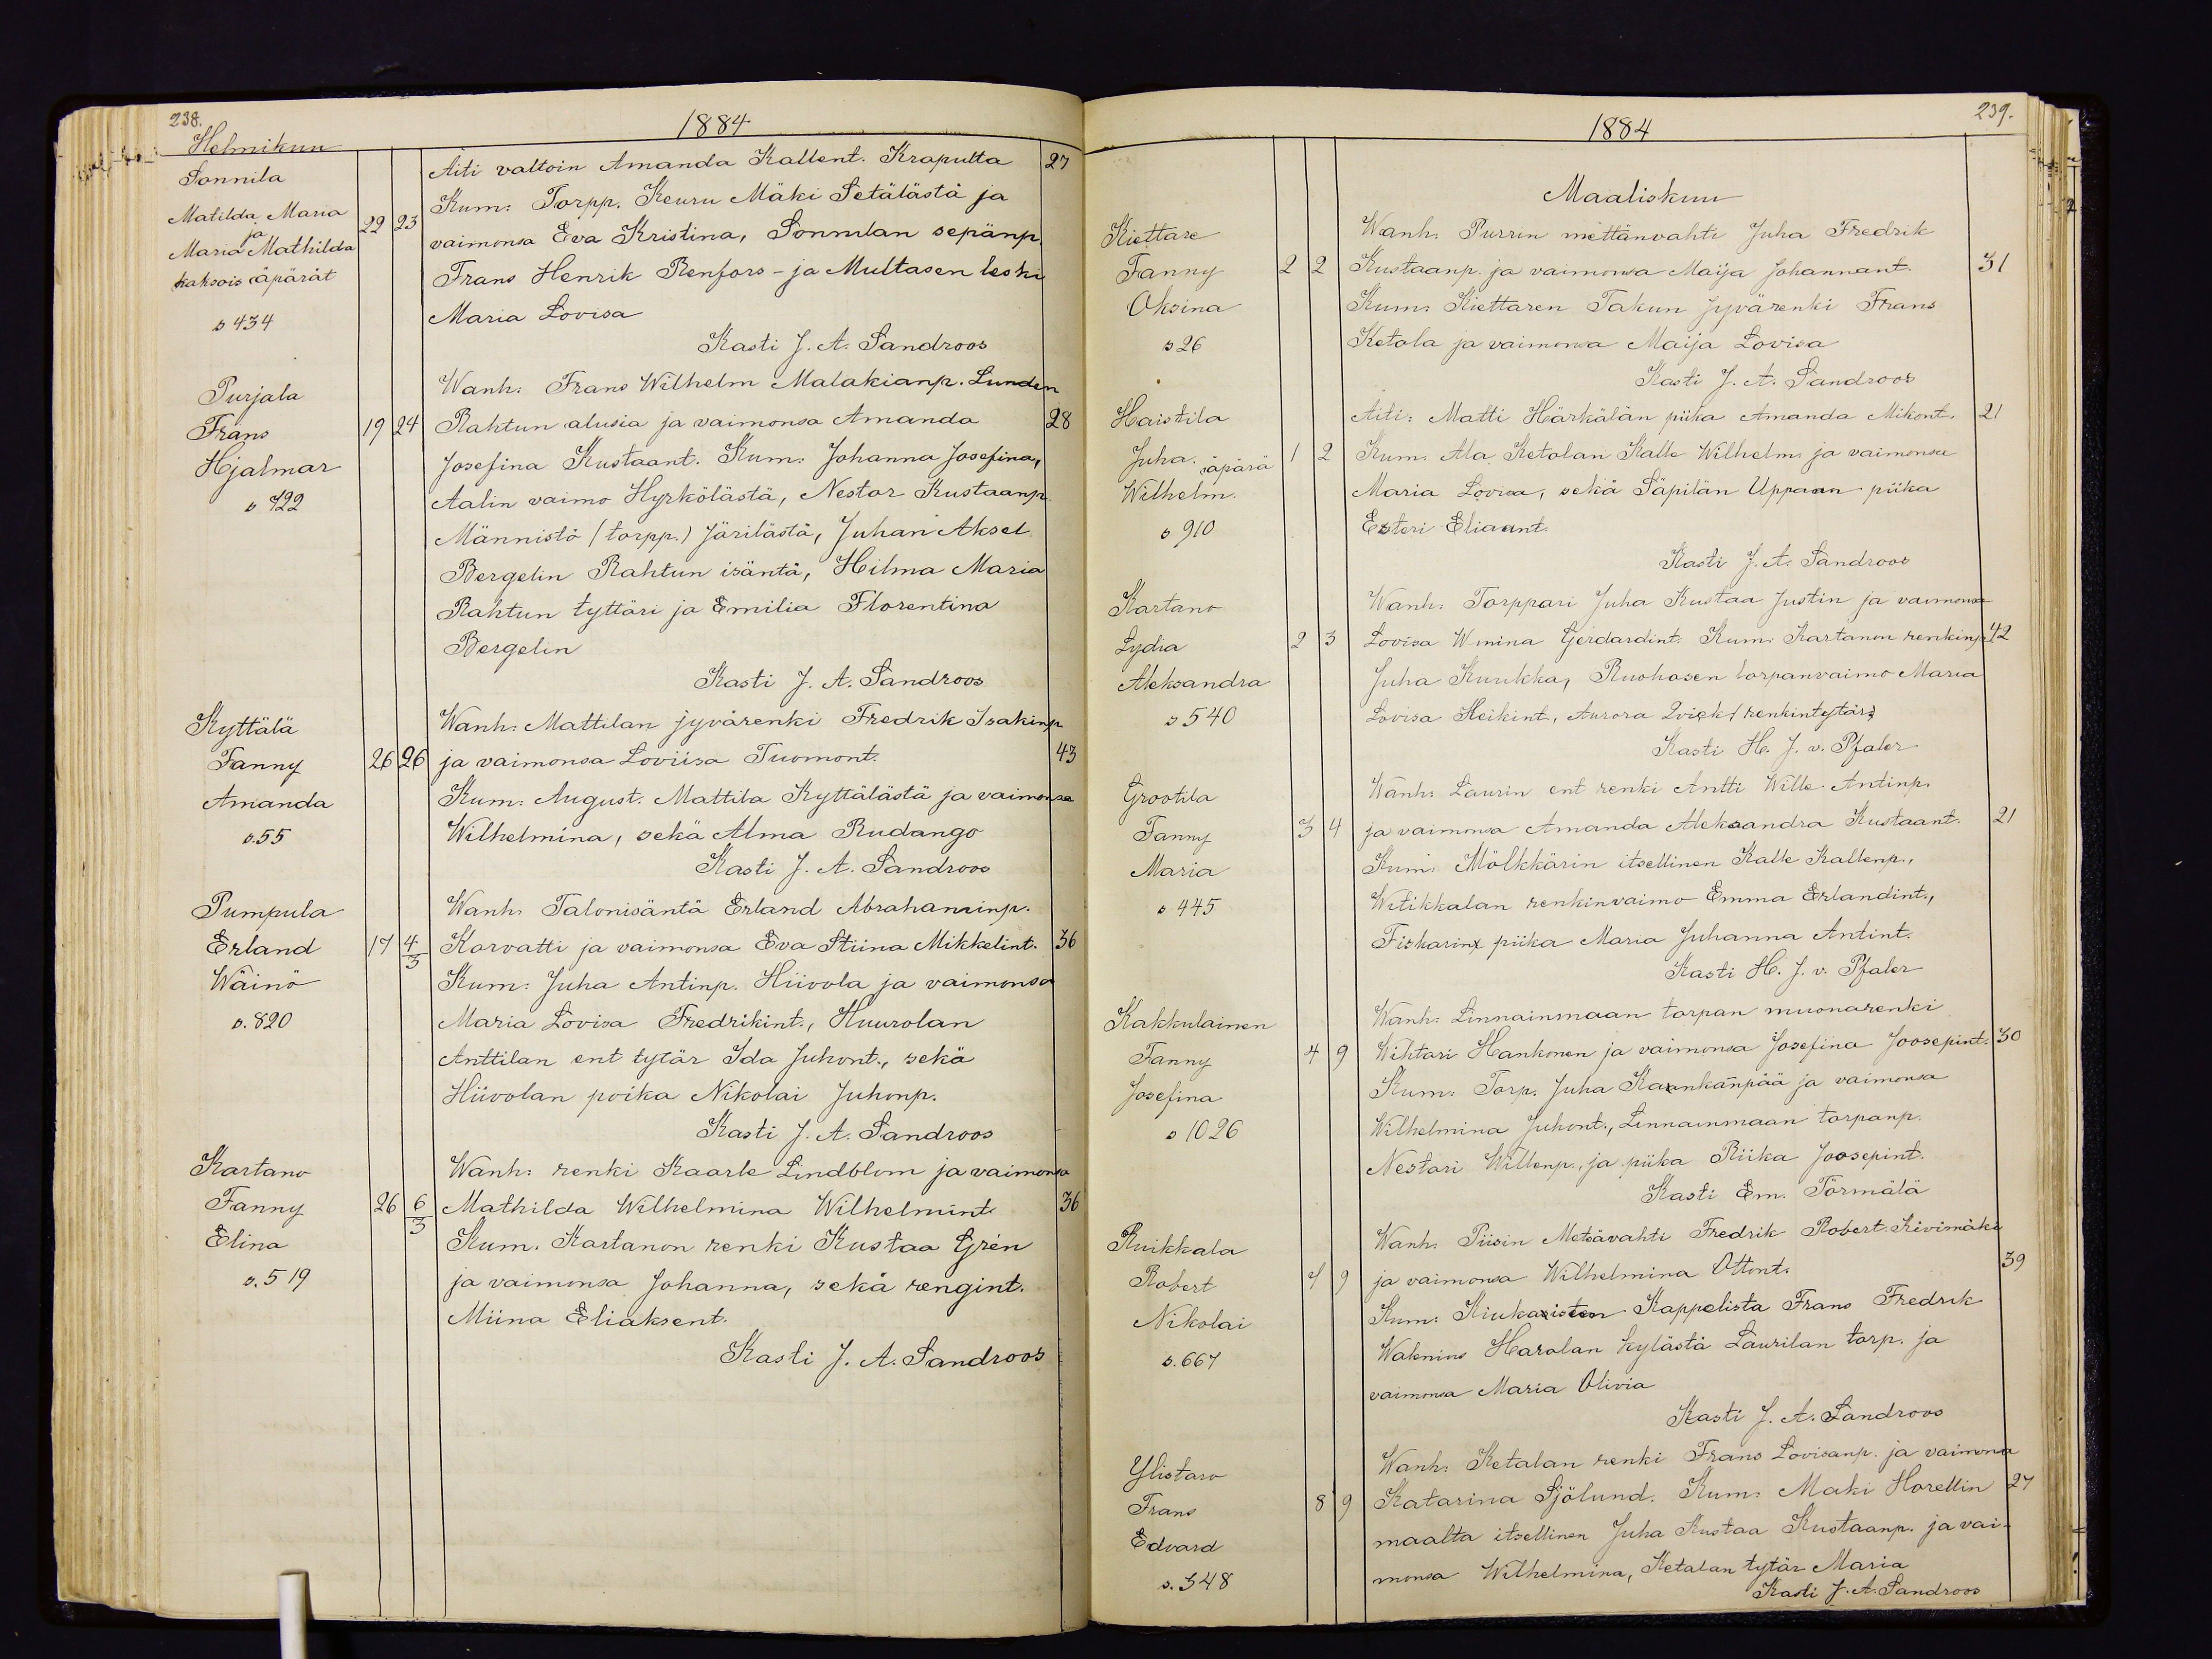 238.
1884
Helmikuu
Sonnila
Matilda Maria
ja
Maria Mathilda
kaksois äpärät
s 434
29 23
Äiti valtoin Amanda Kallent. Krapulta 27
Kum: Torpp. Keuru Mäki Setälästä ja
vaimonsa Eva Kristina, Sonnilan sepänp.
Frans Henrik Renfors - ja Multasen leski
Maria Lovisa
Kasti J. A. Sandroos
Purjala
Frans
Hjalmar
s 722
19 24
Wanh: Frans Wilhelm Malakianp. Lunden
Rahtun alusia ja vaimonsa Amanda 28
Josefina Kustaant. Kum: Johanna Josefina,
Aalin vaimo Hyrkölästä, Nestor Kustaanp.
Männistö (torpp.) Järilästä, Juhan Aksel
Bergelin Rahtun isäntä, Hilma Maria
Rahtun tyttäri ja Emilia Florentina
Bergelin
Kasti J. A. Sandroos
Kyttälä
Fanny
Amanda
s.55
26 26
Wanh: Mattilan jyvärenki Fredrik Isakinp
ja vaimonsa Loviisa Tuomont. 43
Kum: August. Mattila Kyttälästä ja vaimonsa
Wilhelmina, sekä Alma Rudango
Kasti J. A. Sandroos
Pumpula
Erland
Wäinö
s. 820
17 4/3
Wanh: Talonisäntä Erland Abrahaminp.
Korvatti ja vaimonsa Eva Stiina Mikkelint. 36
Kum: Juha Antinp. Hiivola ja vaimonsa
Maria Lovisa Fredrikint., Huurolan
Anttilan ent tytär Ida Juhont., sekä
Hiivolan poika Nikolai Juhonp.
Kasti J. A. Sandroos
Kartano
Fanny
Elina
s. 519
26 6/3
Wanh: renki Kaarle Lindblom ja vaimonsa
Mathilda Wilhelmina Wilhelmint. 36
Kum. Kartanon renki Kustaa Grén
ja vaimonsa Johanna, sekä rengint.
Miina Eliaksent.
Kasti J. A. Sandroos
239.
1884
Maaliskuu
Kiettare
Fanny
Oksina
s 26
2 2
Wanh. Purrin mettänvahti Juha Fredrik
Kustaanp. ja vaimonsa Maija Johannant. 31
Kum: Kiettaren Takun jyvärenki Frans
Ketola ja vaimonsa Maija Lovisa
Kasti J. A. Sandroos
Haistila
Juha. äpärä
Wilhelm.
s 910
1 2
Äiti: Matti Härkälän piika Amanda Mikont. 21
Kum. Ala Ketolan Kalle Wilhelm. ja vaimonsa
Maria Lovisa, sekä Säpilän Uppaan piika
Esteri Eliaant.
Kasti J. A. Sandroos
Kartano
Lydia
Aleksandra
s 540
2 3
Wanh: Torppari Juha Kustaa Justin ja vaimonsa
Lovisa Wmina Gerdardint. Kum: Kartanon renkinp 42
Juha Kuukka, Ruohosen torpanvaimo Maria
Lovisa Heikint., Aurora Qvick (renkintytär)
Kasti H. J. v. Pfaler
Grootila
Fanny
Maria
s 445
3 4
Wanh: Laurin ent renki Antti Wille Antinp.
ja vaimonsa Amanda Aleksandra Kustaant. 21
Kum: Mölkkärin itsellinen Kalle Kallenp.,
Witikkalan renkinvaimo Emma Erlandint.,
Fiskarin piika Maria Juhanna Antint.
Kasti H. J. v. Pfaler
Kakkulainen
Fanny
Josefina
s 1026
4 9
Wanh: Linnainmaan torpan muonarenki
Wihtari Hankonen ja vaimonsa Josefina Joosepint. 30
Kum: Torp. Juha Kankanpää ja vaimonsa
Wilhelmina Juhont., Linnainmaan torpanp.
Nestari Willenp., ja piika Riika Joosepint.
Kasti Em. Törmälä
Ruikkala
Robert
Nikolai
s. 667
7 9
Wanh. Piisin Metsävahti Fredrik Robert Kivimäki
ja vaimonsa Wilhelmina Ottont. 39
Kum: Kiukaisten Kappelista Frans Fredrik
Waknius Harolan kylästä Laurilan torp. ja
vaimonsa Maria Olivia
Kasti J. A. Sandroos
Ylistaro
Frans
Edvard
s. 348
8 9
Wanh: Ketalan renki Frans Lovisanp. ja vaimonsa
Katarina Sjölund. Kum: Maki Horellin 27
maalta itsellinen Juha Kustaa Kustaanp. ja vai-
monsa Wilhelmina, Ketalan tytär Maria
Kasti J. A. Sandroos